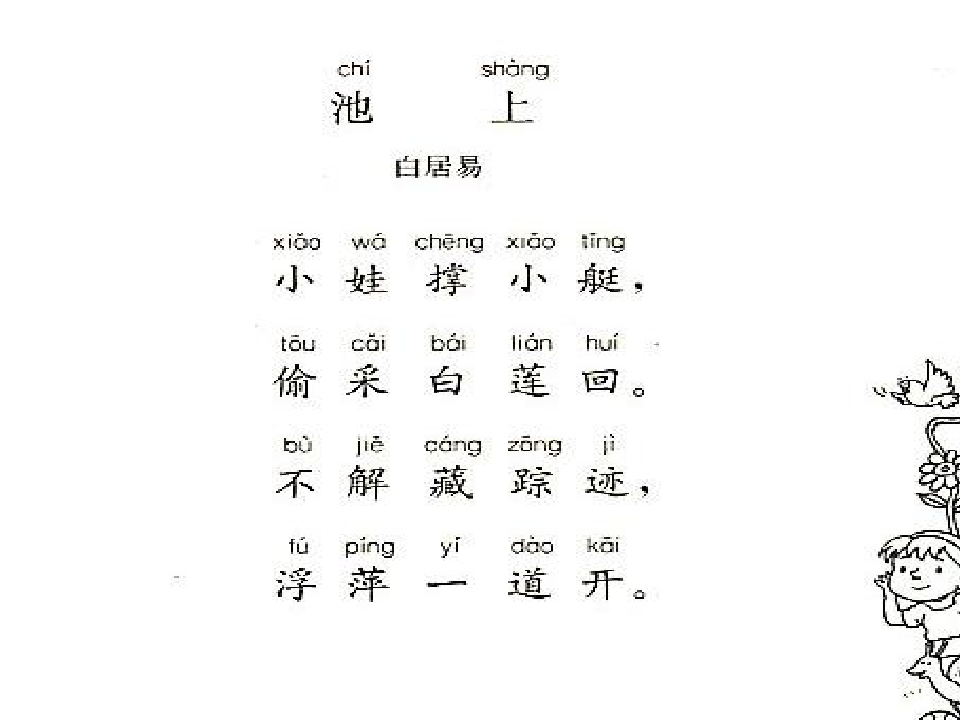 chí shàng
池 上
白居易
xiǎo wá chēng xiǎo tǐng
小 娃 撑 小 艇，
tōu cǎi bái lián huí
偷 采 白 莲 回。
bù jiě cáng zōng jì
不 解 藏 踪 迹，
fú píng yí dào kāi
浮 萍 一 道 开。